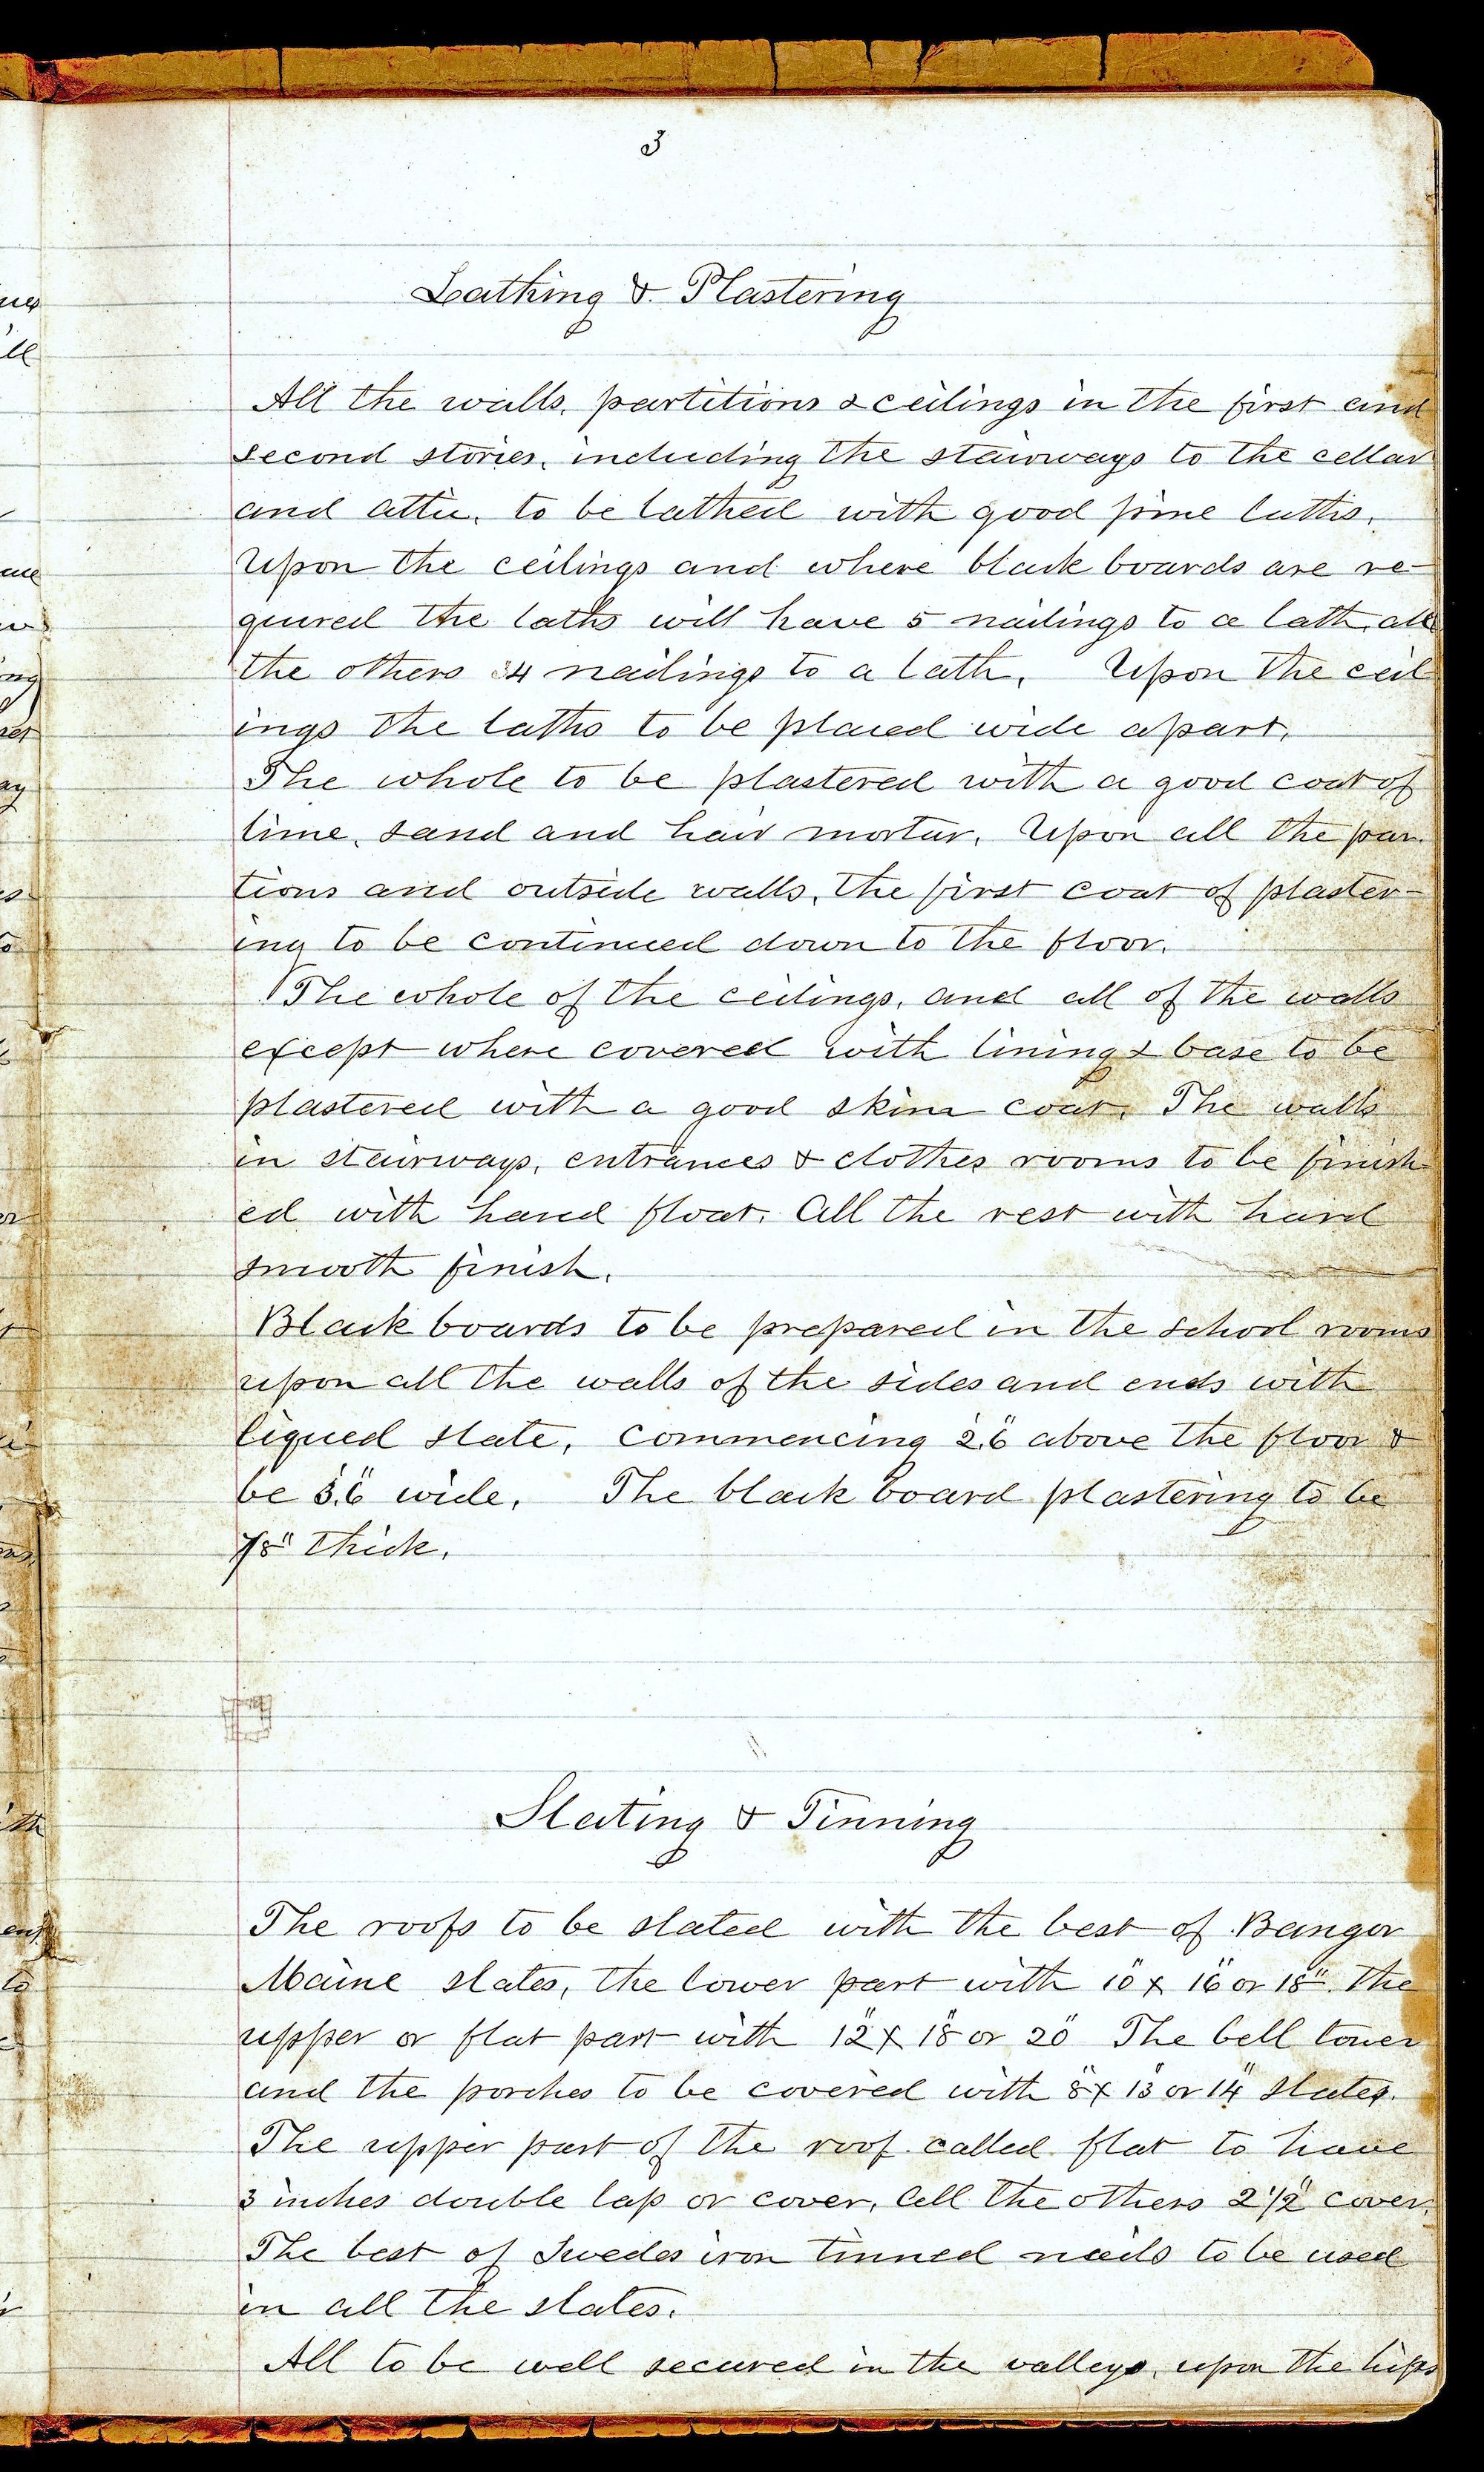 3
Lathing & Plastering
All the walls, partitions & ceilings in the first and
second stories, including the stairways to the cellar
and attic, to be lathed with good pine laths.
Upon the ceilings and where black boards are re-
quired the laths will have 5 nailings to a lath, all
the others 4 nailings to a lath. Upon the ceil
ings the laths to be placed wide apart.
The whole to be plastered with a good coat of
lime, sand and hair mortar. Upon all the par.
tions and outside walls, the first coat of plaster-
ing to be continued down to the floor.
The whole of the ceilings, and all of the walls
except where covered with lining & base to be
plastered with a good skim coat. The walls
in stairways, entrances & clothes rooms to be finish
ed with hard float. All the rest with hard
smooth finish.
Black boards to be prepared in the school rooms
upon all the walls of the sides and ends with
liqued slate, commencing 2'.6" above the floor &
be 3'.6" wide. The black board plastering to be
7/8" thick.
Slating & Tinning
The roofs to be slated with the best of Bangor
Maine slates, the lower part with 10" x 16" or 18" the
upper or flat part with 12" x 18" or 20" The bell tower
and the porches to be covered with 8" x 13" or 14" slates.
The upper part of the roof called flat to have
3 inches double lap or cover, all the others 2 1/2" cover.
The best of Swedes iron tinned nails to be used
in all the slates.
All to be well secured in the valleys, upon the hips